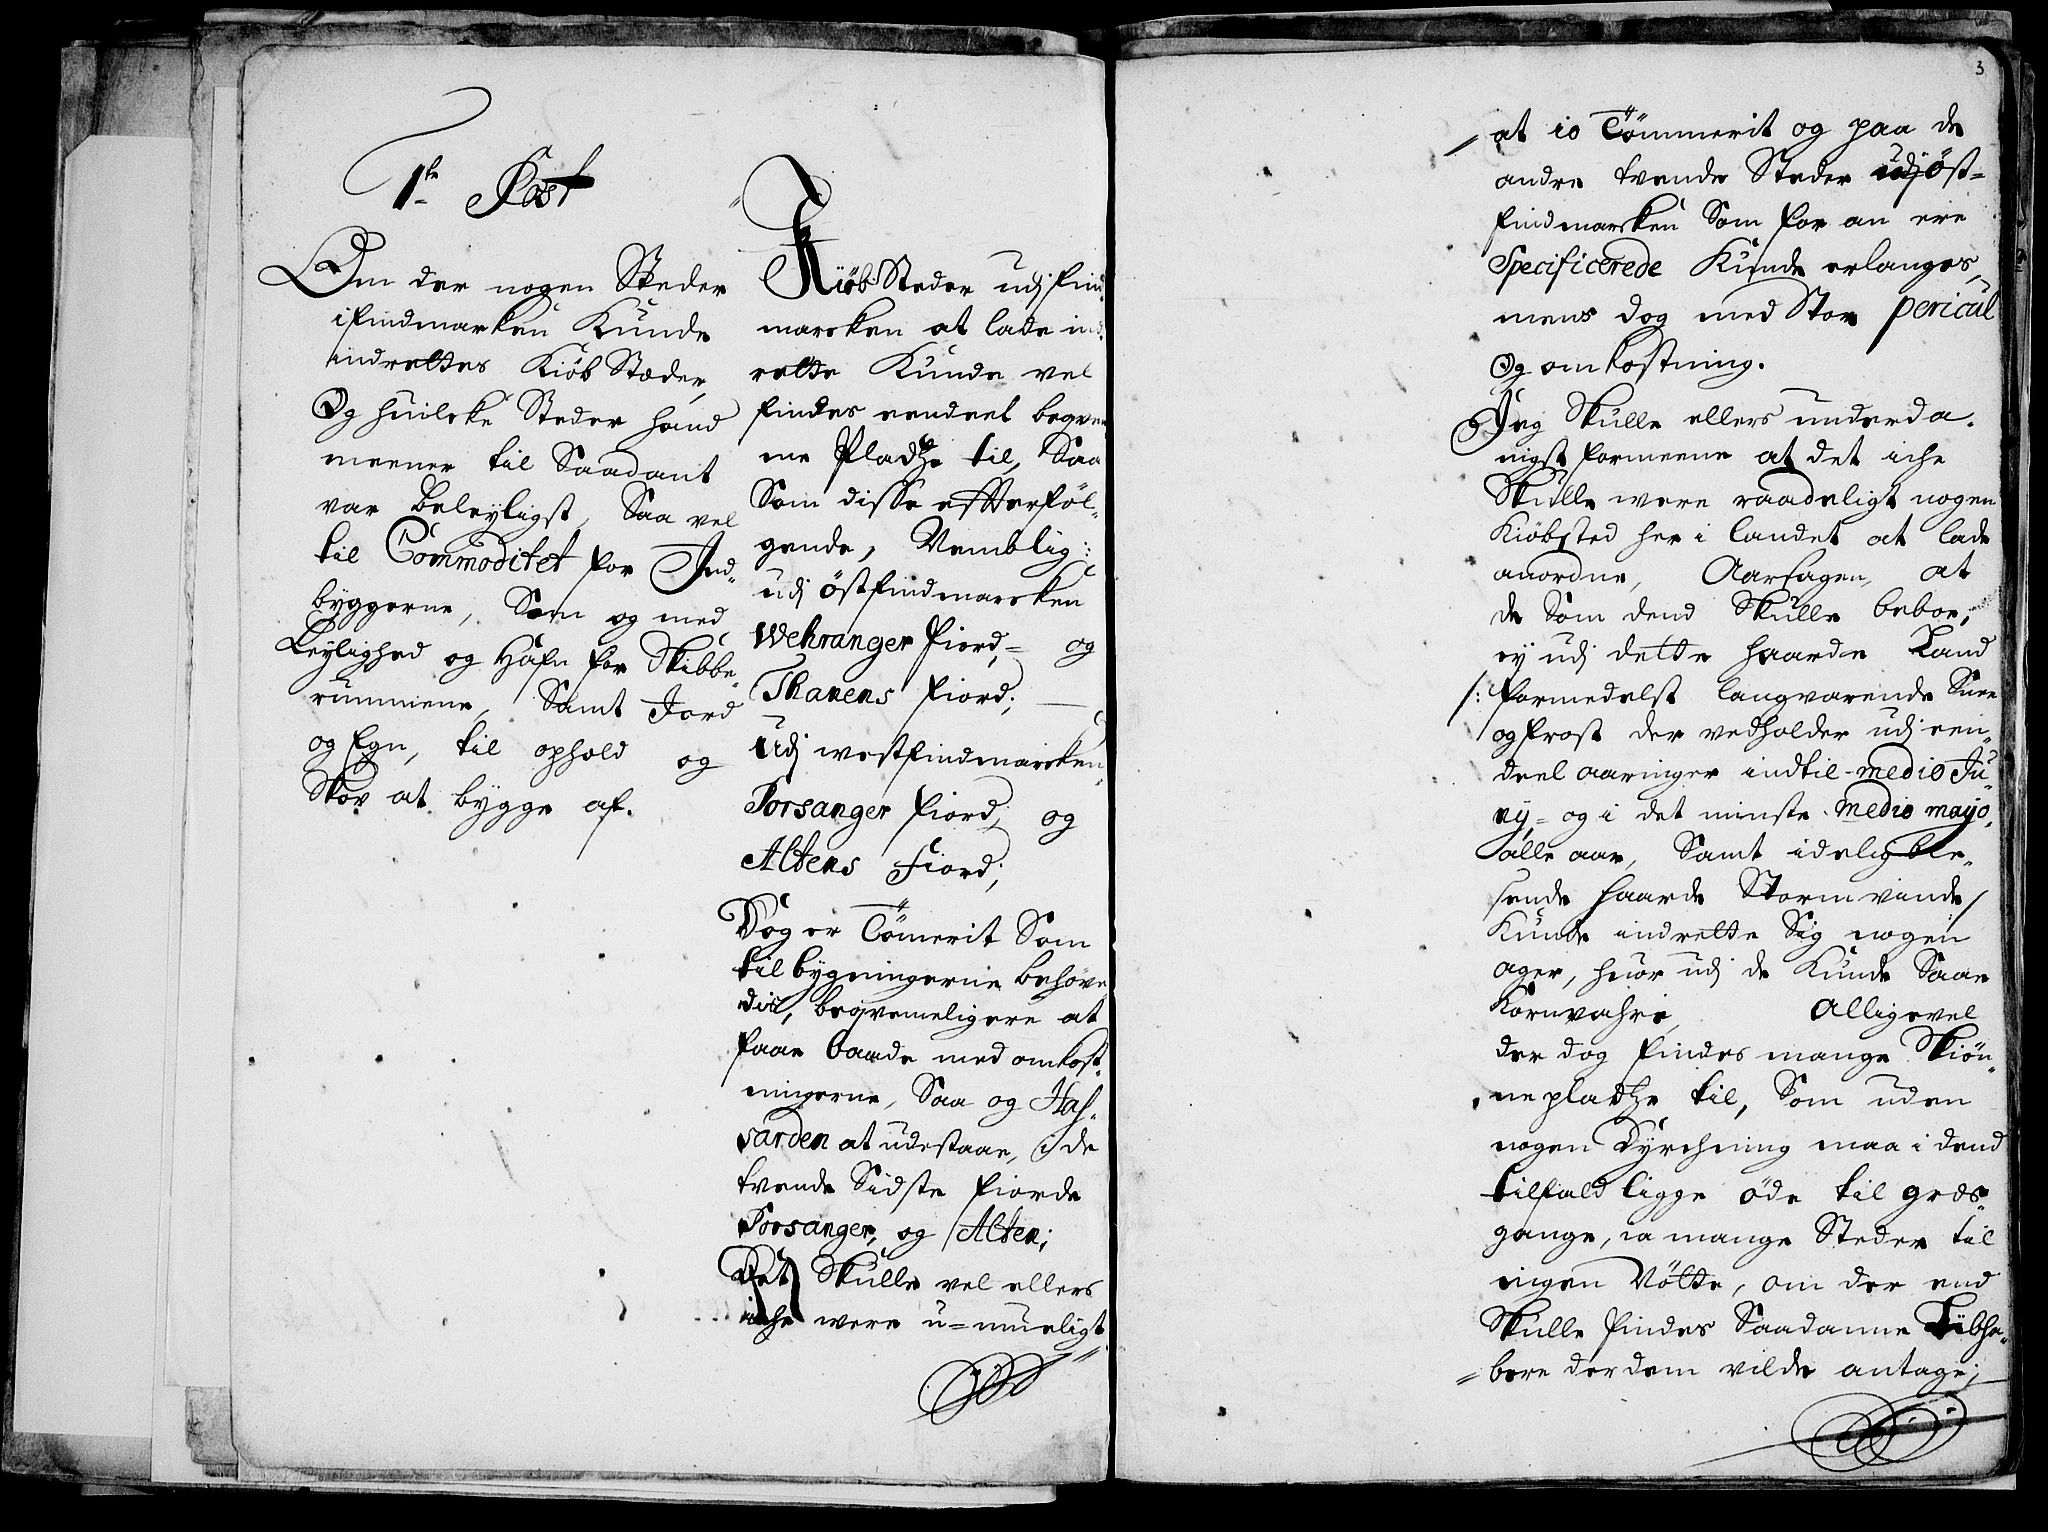 1te Post
Om der nogen Steder
i findmarken Kunde
indrettes Kiöb Stæder,
Og huilcke Steder hand
meener til Saadant
var Beleyligst, Saa vel
til Commoditet for Ind„
byggerne, Som og med
Leylighed og Hafn for Skibbe„
rummene, Samt Jord
og Egn, til ophold og
Skov at bygge af.
Kiöb Steder udj find„
marcken at lade ind„
rette Kunde vel
findes eendeel beqvem„
me Pladtze til, Saa
Som disse effterföl„
gende, Nemblig:
udj östfindmarcken
Wehranger fiord,= og
Thanens fiord; —
Udj westfindmarcken„
Porsanger fiord, og
Altens fiord;
Dog er Tömerit Som
til bygningerne behöve
dis, beqvemeligere at
faae baade med omkost„
ningerne, Saa og Haf„
sarden at udestaae, i de
tvende Sidste fiorde
Porsanger, og Alten;
Det Skulle vel ellers
iche were u=mueligt
3
at 10 Tömmerit og paa de
andre tvende Steder udj öst=
findmarcken Som for an ere
Specificerede Kunde erlanges,
mens dog med Stor pericul
Og omkostning.
Jeg Skulle ellers underda„
nigst formeene at det iche
Skulle were raadeligt nogen
Kiöbsted her i landet at lade
anordne, Aarsagen, at
de Som dend Skulle beboe,
ey udj dette haarde Land
/: formedelst langvarende Snee
og frost der vedholder udj een„
deel aaringer indtil medio Ju„
ny= og i det minste medio mayo,
alle aar, Samt idelig ble„
sende haarde Storm vinde/
Kunde indrette Sig nogen
ager, huor udj de Kunde Saae
Kornvahre, Alligevel
der dog findes mange Skiön„
ne pladtze til, Som uden
nogen Dyrchning maa i dend
tilfald ligge öde til græs„
gange, ia mange Steder til
ingen Nötte, om der end
Skulle findes Saadanne Libha„
bere der dem vilde antage;